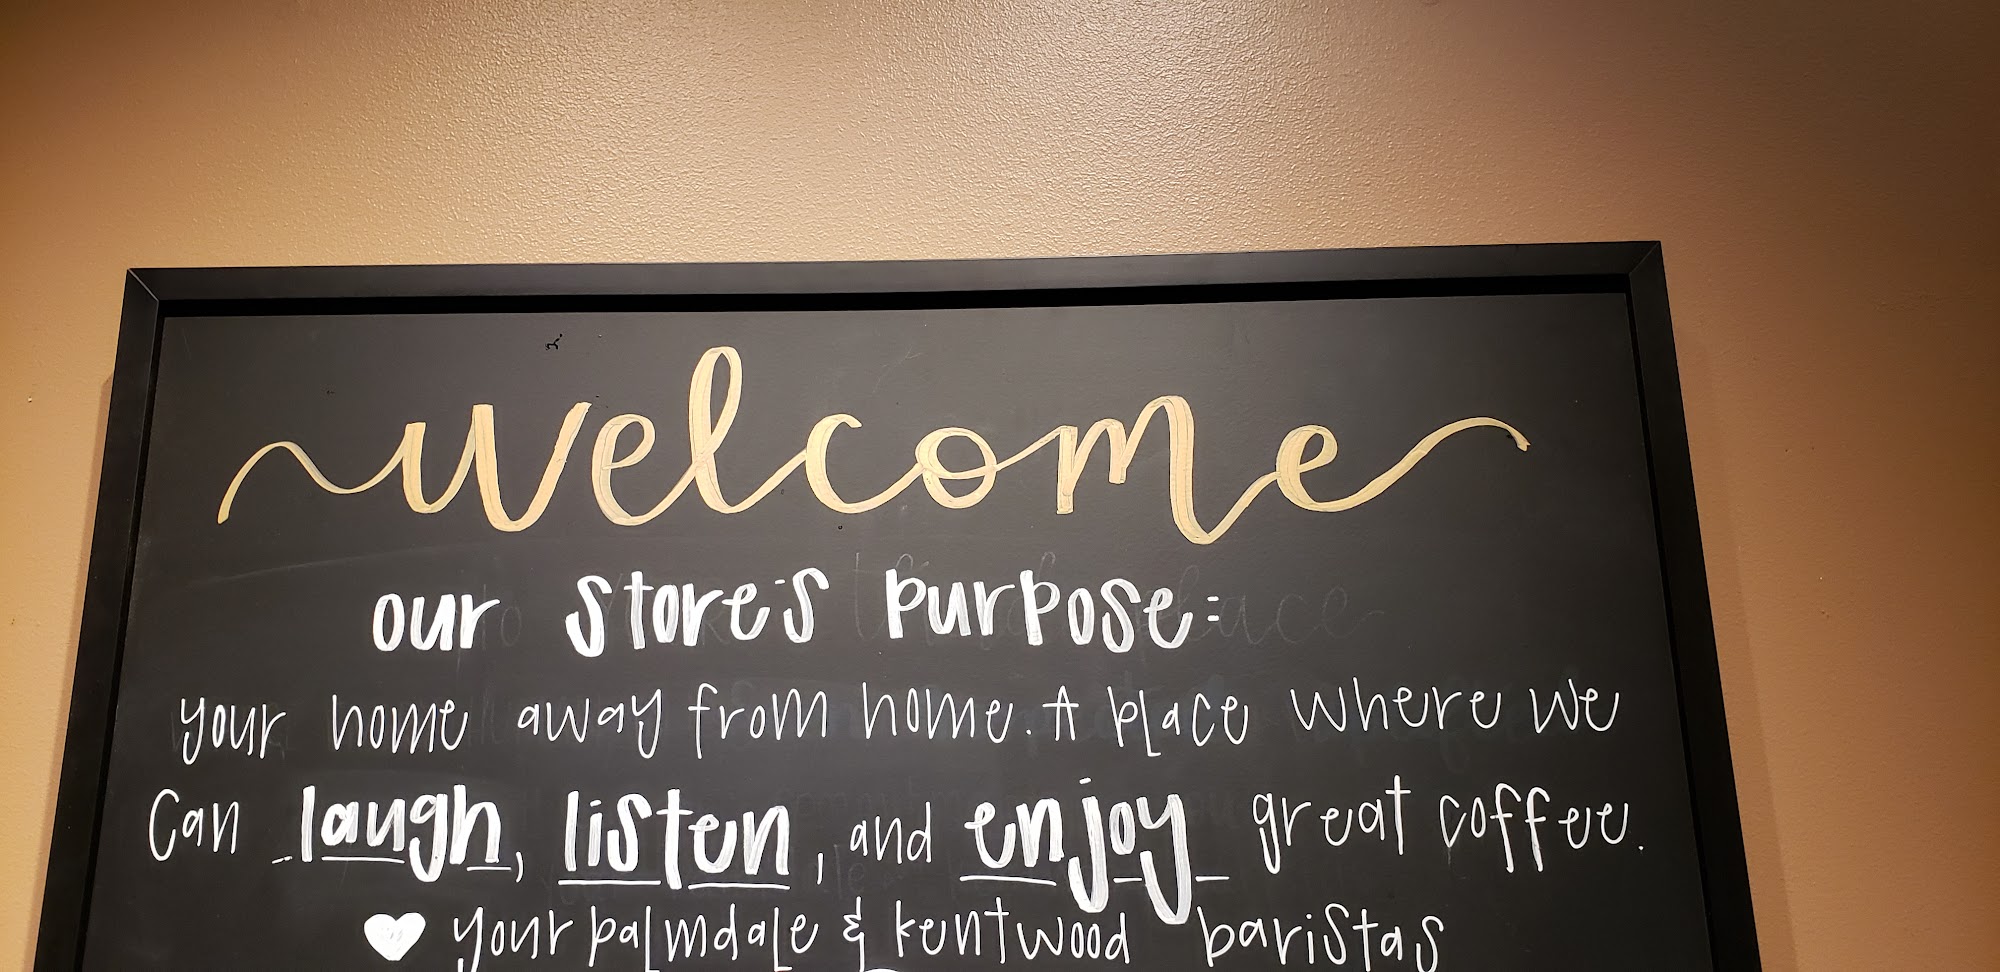 welcome
our store's purpose:
your home away from home. A place where we
can laugh, listen, and enjoy great coffee.
♥ your palmdale & kentwood baristas